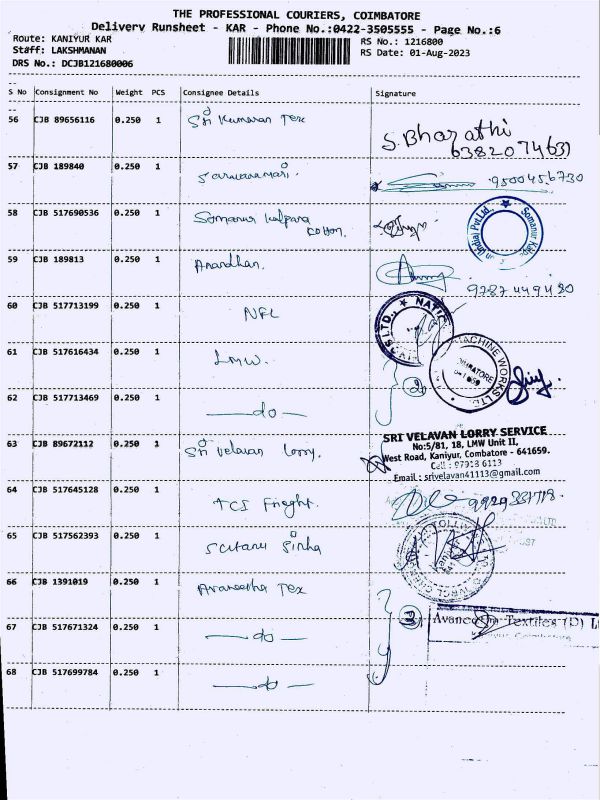 THE PROFESSIONAL COURIERS, COIMBATORE
Delivery Runsheet - KAR - Phone No.:0422-3505555 - Page No.:6
Route: KANIYUR KAR
Staff: LAKSHMANAN
DRS No.: DCJB121680006
RS No.: 1216800
RS Date: 01-Aug-2023
S No Consignment No Weight PCS Consignee Details Signature
56 CJB 89656116 0.250 1 Sri Kumaran Tex S. Bharathi
6382074631
57 CJB 189840 0.250 1 Saravanamari. 9500456730
58 CJB 517690536 0.250 1 Somanur Kalpana
Cotton.
Somanur (India) Pvt Ltd.
59 CJB 189813 0.250 1 Anandhan.
9787449480
60 CJB 517713199 0.250 1 NFL
61 CJB 517616434 0.250 1 LMW.
MACHINE WORKS LTD
62 CJB 517713469 0.250 1 —do—
63 CJB 89672112 0.250 1 Sri Velavan Lorry.
SRI VELAVAN LORRY SERVICE
No:5/81, 18, LMW Unit II,
West Road, Kaniyur, Combatore - 641659.
Cell : 97913 6113
Email : srivelavan41113@gmail.com
64 CJB 517645128 0.250 1 TCI Frieght.
65 CJB 517562393 0.250 1 Sinha
66 CJB 1391019 0.250 1 Avaneetha Tex
Textiles (P) L
67 CJB 517671324 0.250 1 —do—
68 CJB 517699784 0.250 1 —do—